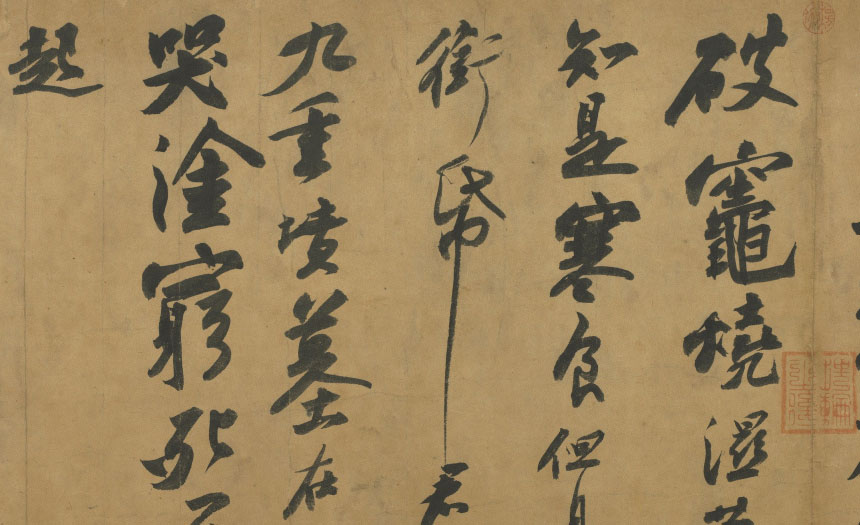 破竈燒濕
知是寒食但
銜帋君
九重墳墓在
哭塗窮死
起